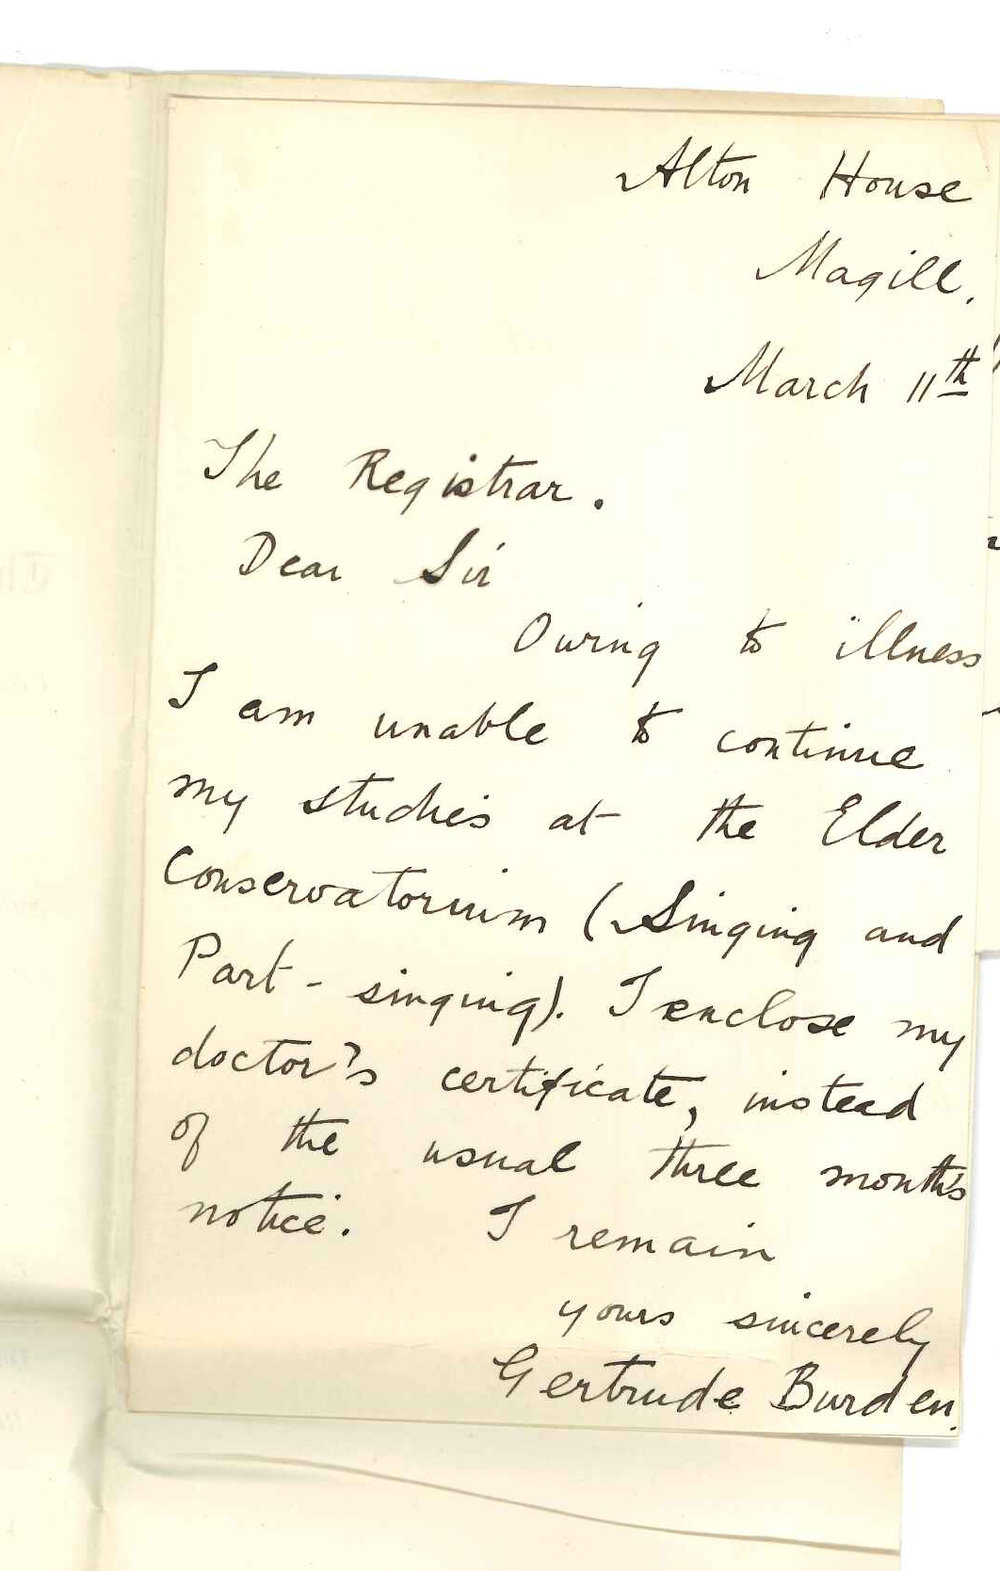 Alton House
Magill.
March 11th
The Registrar.
Dear Sir
Owing to illness
I am unable to continue
my studies at the Elder
Conservatorium (Singing and
Part-singing). I enclose my
doctor's certificate, instead
of the usual three month's
notice. I remain
yours sincerely
Gertrude Burden.